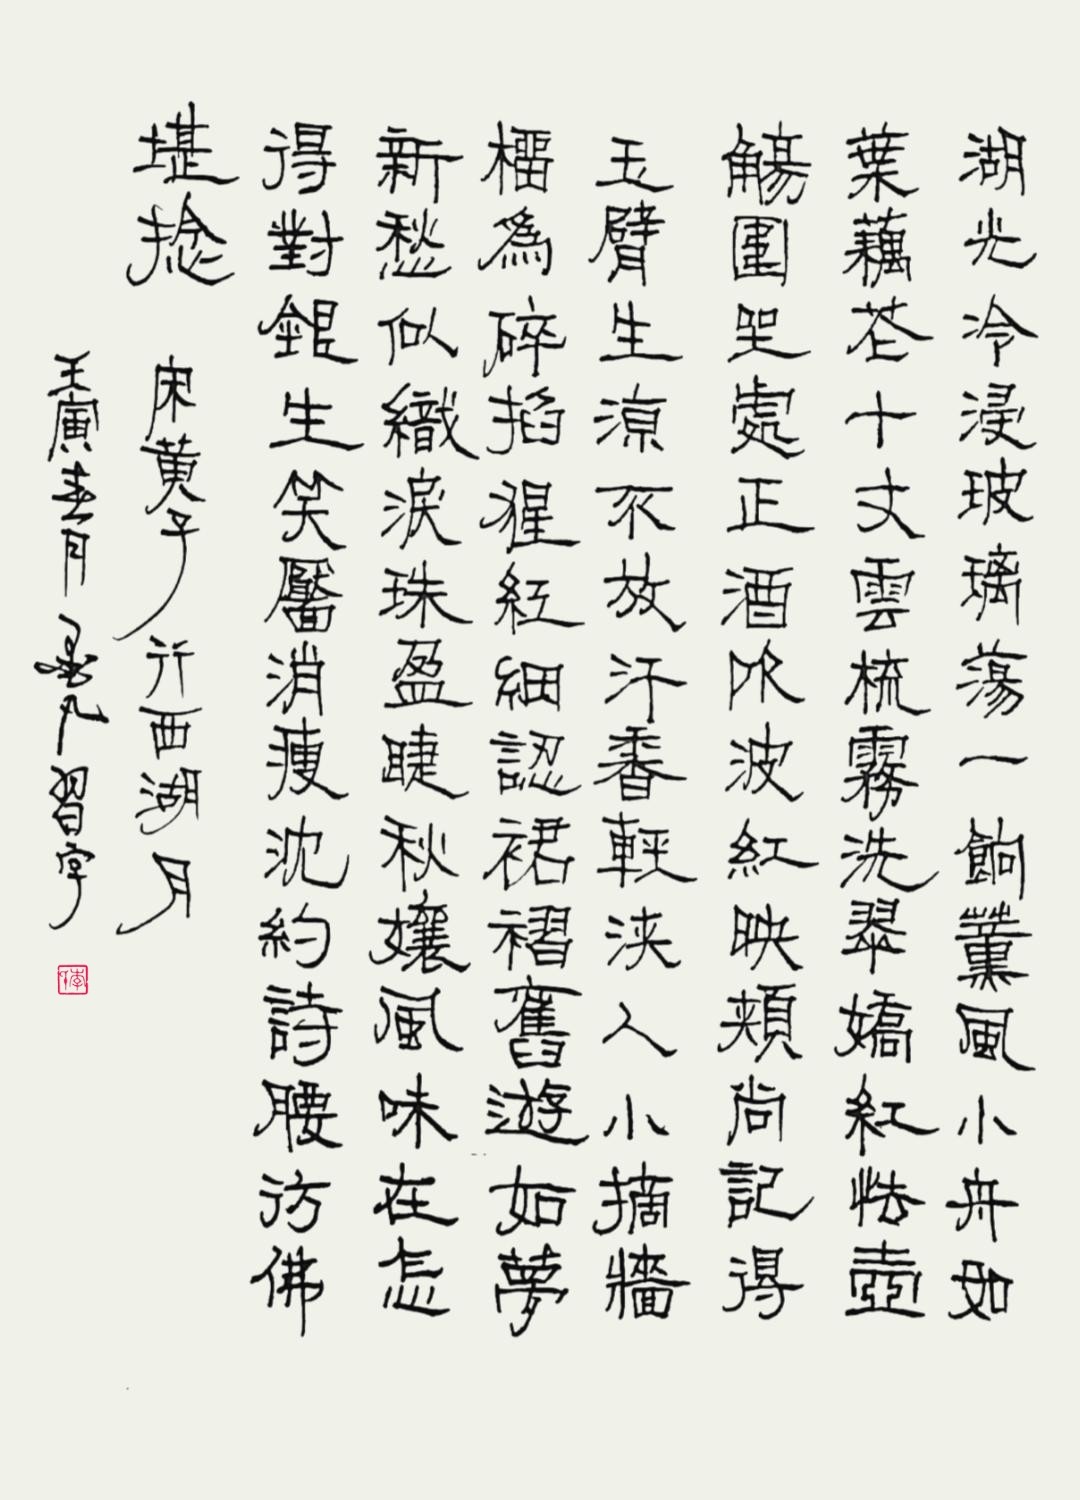 湖光冷浸玻璃蕩一餉薰風小舟如
葉藕花十丈雲梳霧洗翠嬌紅怯壺
觴圍坐處正酒吹波紅映頰尚記得
玉臂生涼不放汗香輕浹人小摘牆
榴為碎掐猩紅細認裙褶舊遊如夢
新愁似織淚珠盈睫秋孃風味在怎
得對銀生笑靨消瘦沈約詩腰彷彿
堪捻
宋黄子行西湖月
壬寅春月 凡習字